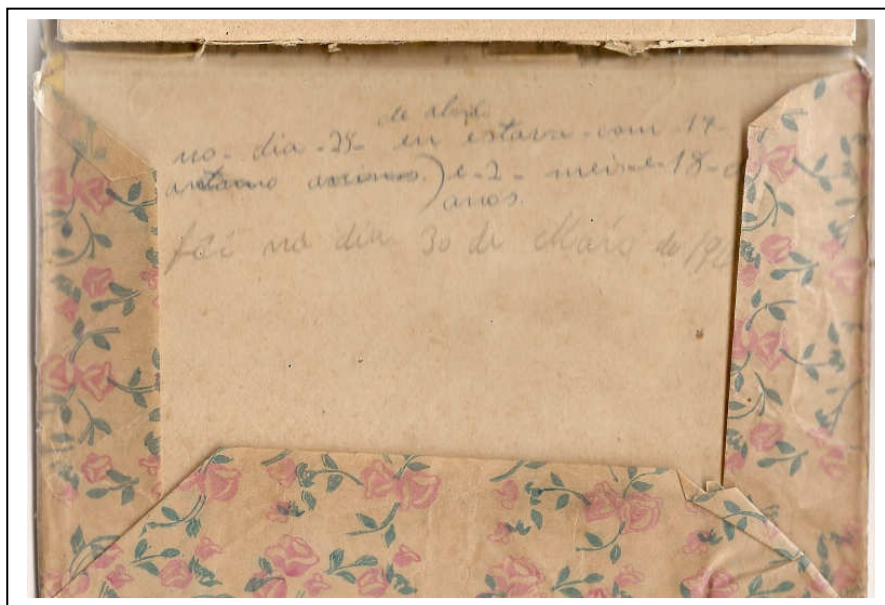 de abril
no - dia - 28 - eu estava - com - 17 -
) e - 2 - meis - e - 18 -
anos.
foi no dia 30 de Maio de 19